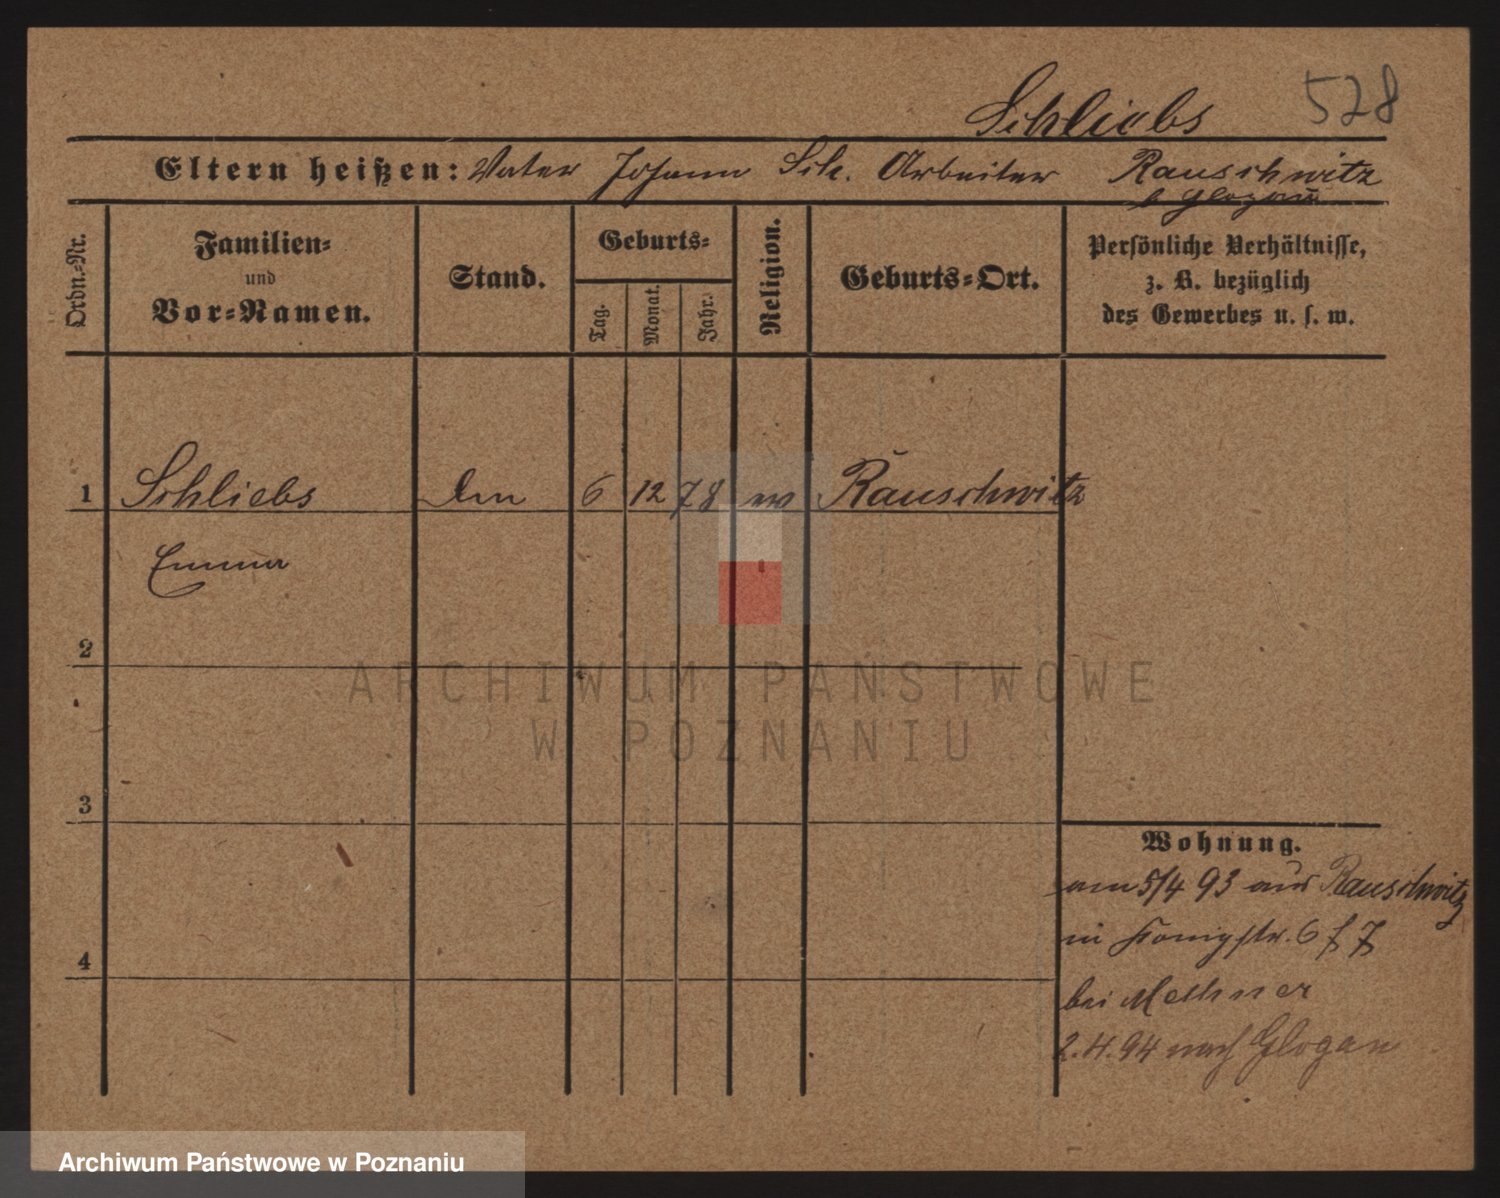 Schliebs 528
Eltern heißen: Vater Johann Sch. Arbeiter Rauschwitz
b Glogau
Ordn.-Nr.
Familien-
und
Vor-Namen.
Stand.
Geburts-
Tag.
Monat.
Jahr.
Religion.
Geburts-Ort.
Persönliche Verhältnisse,
z. B. bezüglich
des Gewerbes u. s. w.
1 Schliebs 6 12 78 ev Rauschwitz
Emma
2
ARCHIWUM PAŃSTWOWE
W POZNANIU
3
Wohnung.
am 5/4 93 aus Rauschwitz
in Königstr. 6/7
bei
4
2.4.94 nach Glogau
Archiwum Państwowe w Poznaniu